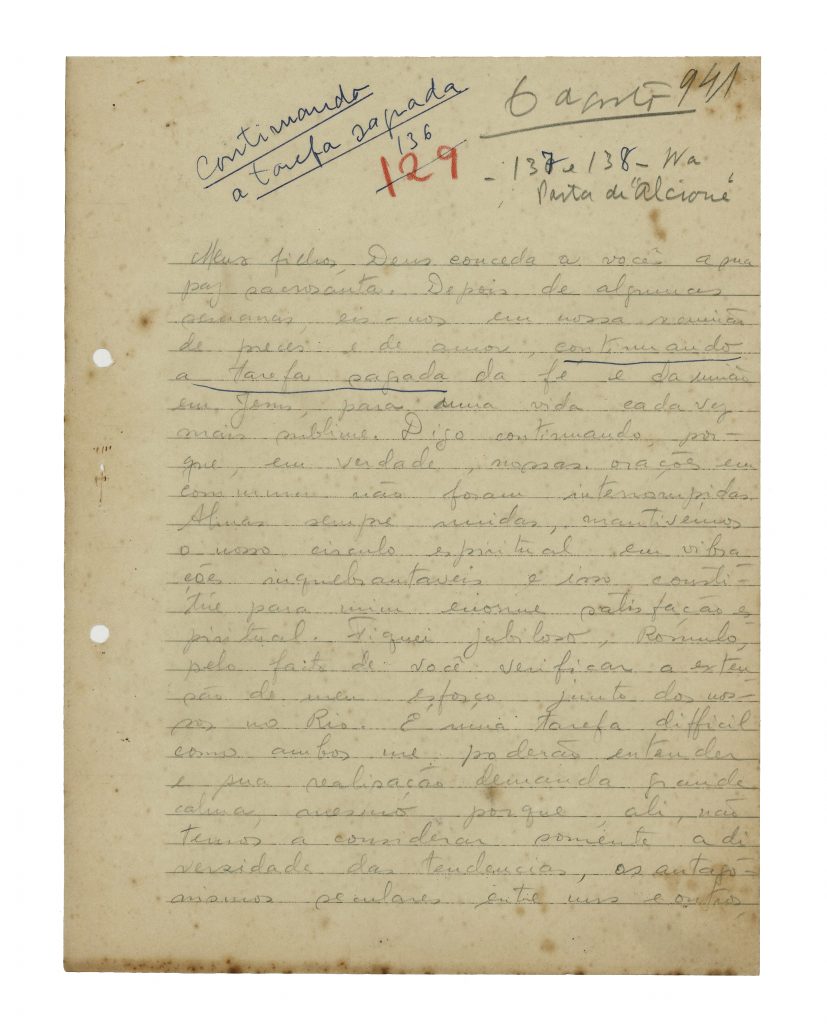 continuando
a tarefa sagrada
6 agosto 941
136
129
- 137 e 138 - Na
Pasta di "Alcione"
Meus filhos, Deus conceda a vocês a sua
paz sacrosanta. Depois de algumas
semanas, eis-nos em nossa reunião
de preces e de amor, continuando
a tarefa sagrada da fé e da união
em Jesus, para uma vida cada vez
mais sublime. Digo continuando, por-
que, em verdade, nossas orações em
commum não foram interrompidas.
Almas sempre unidas, mantivémos
o nosso circulo espiritual em vibra
ções inquebrantaveis e isso consti-
túe para mim enorme satisfação es
piritual. Fiquei jubiloso, Romulo,
pelo facto de você verificar a exten
são de meu esforço junto dos nos-
sos no Rio. É uma tarefa difficil
como ambos me poderão entender
e sua realisação demanda grande
calma, mesmo porque, ali, não
temos a considerar somente a di
versidade das tendencias, os antago-
nismos seculares entre uns e outros,